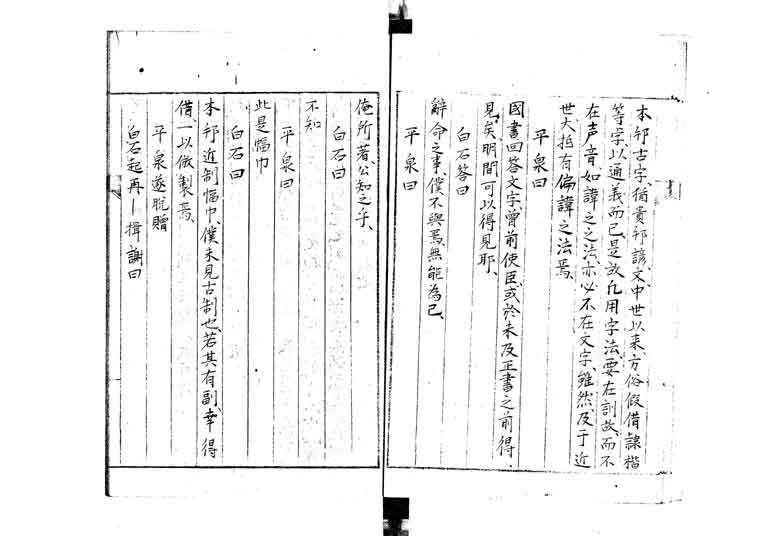 本邦古字、猶貴邦諺文、中世以来、方俗假借隷楷
等字、以通義而已、是故凡用字法、要在訓故、而不
在声音、如諱之之法亦必不在文字、雖然、及于近
世大抵有偏諱之法焉、
平泉曰
國書回答文字、曾前使臣、或於未及正書之前得
見矣、明間可以得見耶、
白石答曰
辭命之事、僕不與焉、無能為已、
平泉曰
俺所著、公知之乎、
白石曰
不知
平泉曰
此是幅巾
白石曰
本邦近制幅巾、僕未見古制也、若其有副、幸得
借一以倣製焉、
平泉遂脱贈
白石起再一揖謝曰